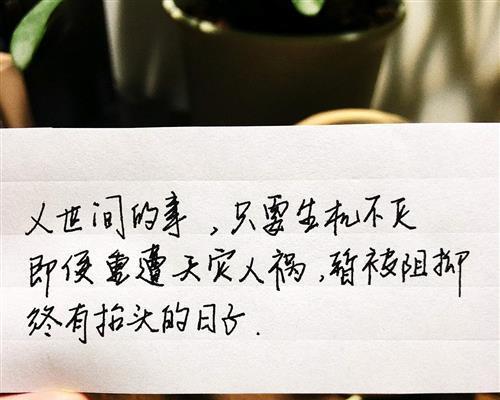 人世间的事，只要生机不灭
即便重遭天灾人祸，暂被阻抑
终有抬头的日子.